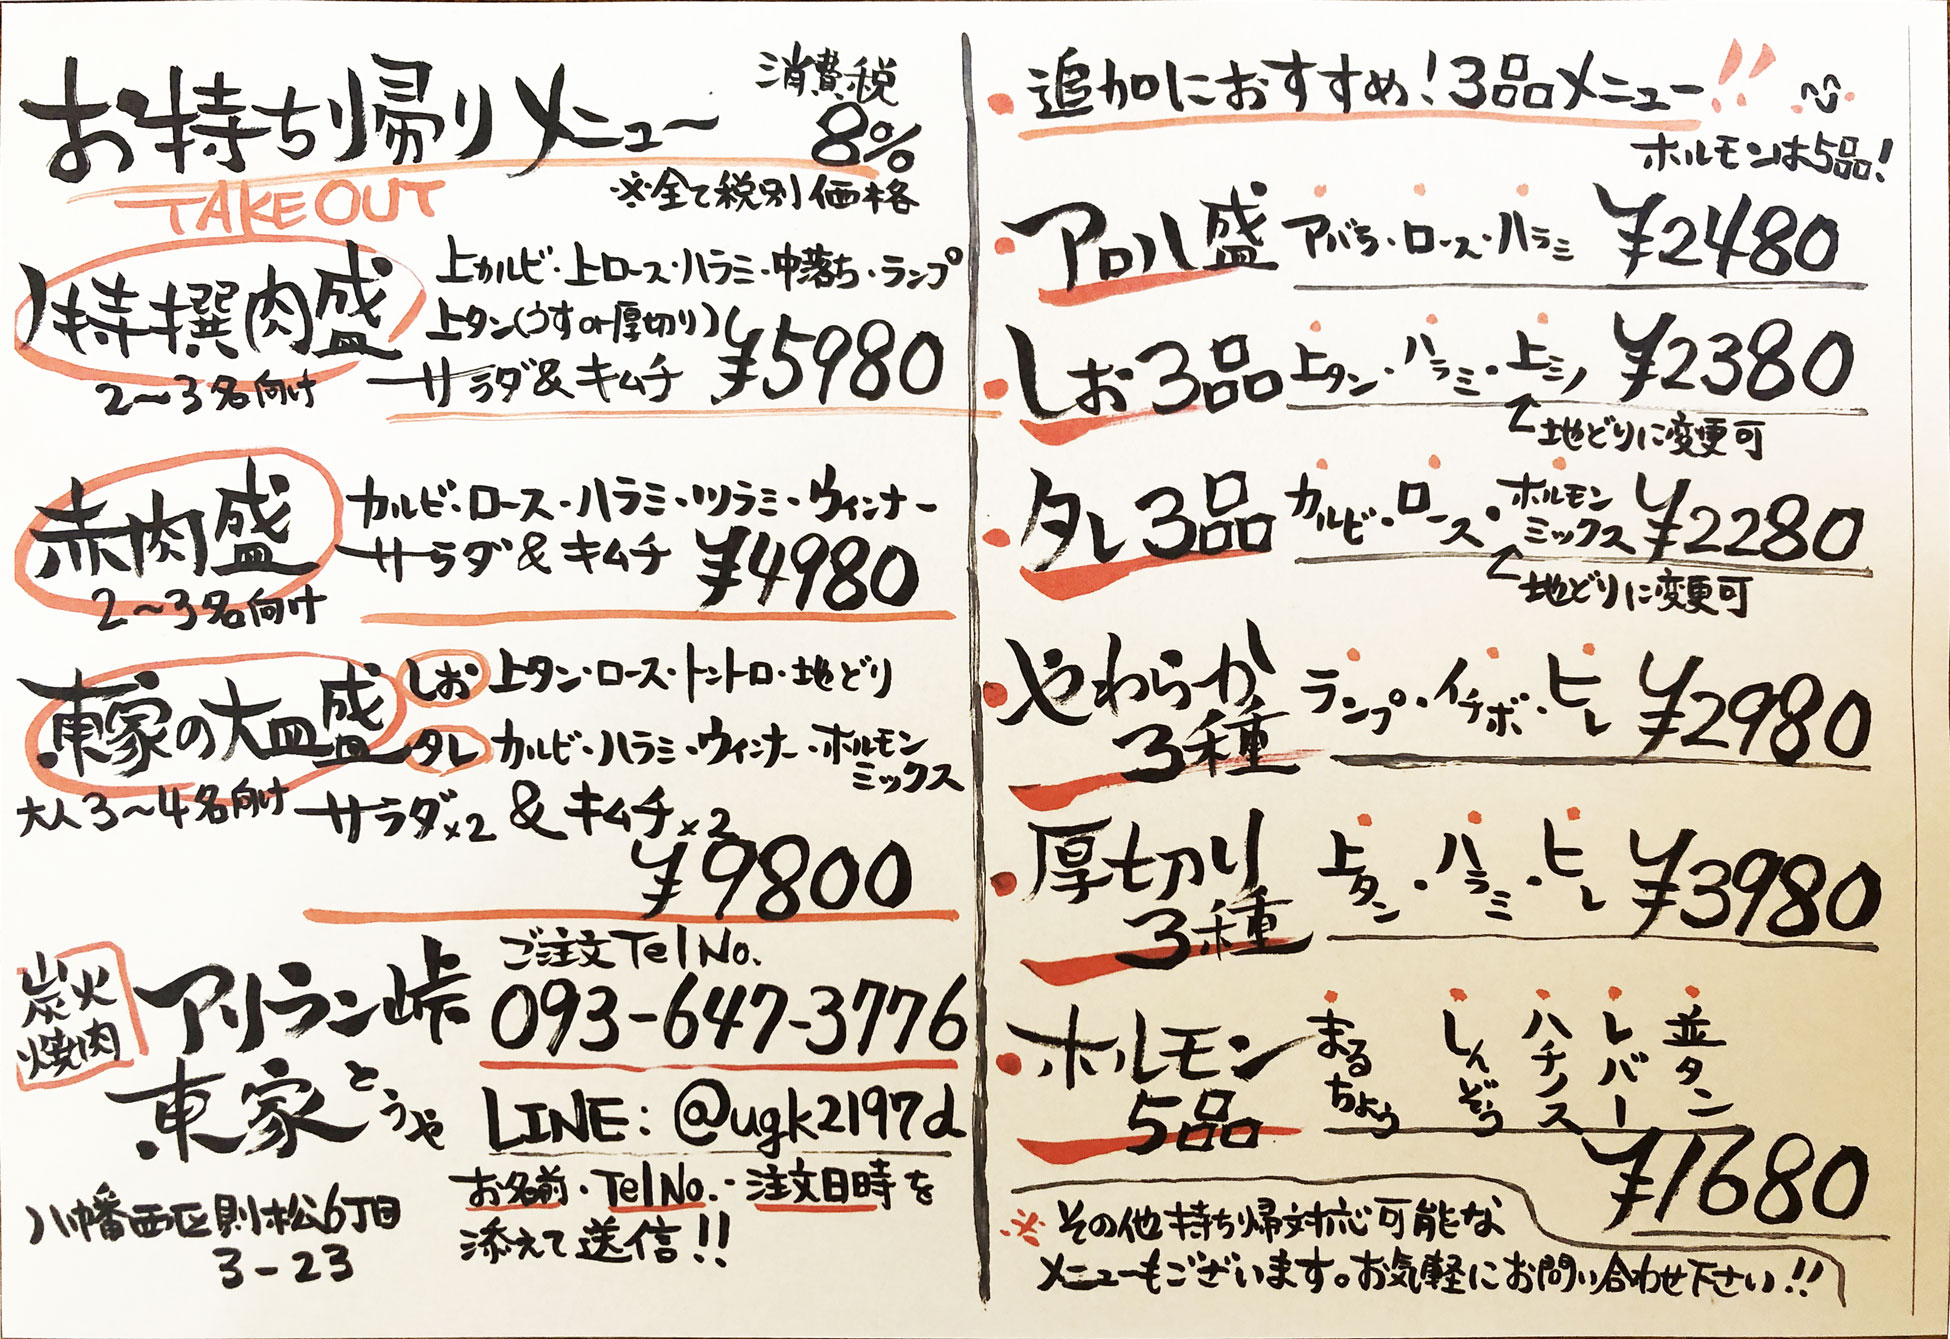 お持ち帰りメニュー
消費税
8%
TAKE OUT
※全て税別価格
特撰肉盛
2〜3名向け
上カルビ・上ロース・ハラミ・中落ち・ランプ
上タン(うすor厚切り)
サラダ&キムチ ¥5980
赤肉盛
2〜3名向け
カルビ・ロース・ハラミ・ツラミ・ウィンナー
サラダ&キムチ ¥4980
東家の大皿盛
大人3〜4名向け
しお 上タン・ロース・トントロ・地どり
タレ カルビ・ハラミ・ウィンナー・ホルモンミックス
サラダ×2 &キムチ×2
¥9800
炭火焼肉
アリラン峠
東家とうや
ご注文TelNo.
093-647-3776
LINE: @ugk2197d
お名前・TelNo.・注文日時を
添えて送信!!
八幡西区則松6丁目
3-23
追加におすすめ!3品メニュー!!
ホルモンは5品!
アロハ盛 アバラ・ロース・ハラミ ¥2480
しお3品 上タン・ハラミ・上ミノ ¥2380
地どりに変更可
タレ3品 カルビ・ロース・ホルモンミックス ¥2280
地どりに変更可
やわらか3種 ランプ・イチボ・ヒレ ¥2980
厚切り3種 上タン・ハラミ・ヒレ ¥3980
ホルモン5品 まるちょう しんぞう ハチノス レバー 並タン
¥1680
※その他持ち帰対応可能な
メニューもございます。お気軽にお問い合わせ下さい!!